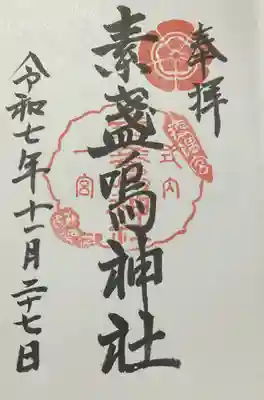 奉拝
素盞嗚神社
令和七年十一月二十七日
式内
一宮